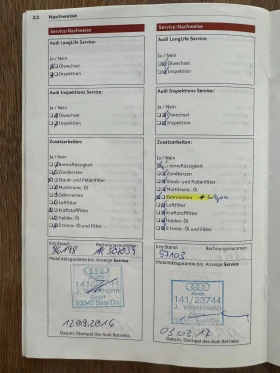 22 Nachweise
Service-Nachweise
Audi LongLife Service:
Ja / Nein
Ölwechsel
Inspektion
Audi Inspektions Service:
Ja / Nein
Ölwechsel
Inspektion
Zusatzarbeiten:
Ja / Nein
Bremsflüssigkeit
Zündkerzen
Staub- und Pollenfilter
Multitronic: Öl
Zahnriemen
Luftfilter
Kraftstofffilter
Haldex: Öl
S tronic: Öl und Filter
Km-Stand: Rechnungsnummer:
Mobilitätsgarantie bis: Anzeige Service
Audi
12.09.2016
Datum, Stempel des Audi Betriebs
Service-Nachweise
Audi LongLife Service:
Ja / Nein
Ölwechsel
Inspektion
Audi Inspektions Service:
Ja / Nein
Ölwechsel
Inspektion
Zusatzarbeiten:
Ja / Nein
Bremsflüssigkeit
Zündkerzen
Staub- und Pollenfilter
Multitronic: Öl
Zahnriemen
Luftfilter
Kraftstofffilter
Haldex: Öl
S tronic: Öl und Filter
Km-Stand: Rechnungsnummer:
57103
Mobilitätsgarantie bis: Anzeige Service
Audi
141/23744
J. Wiedmann
03.03.17
Datum, Stempel des Audi Betriebs